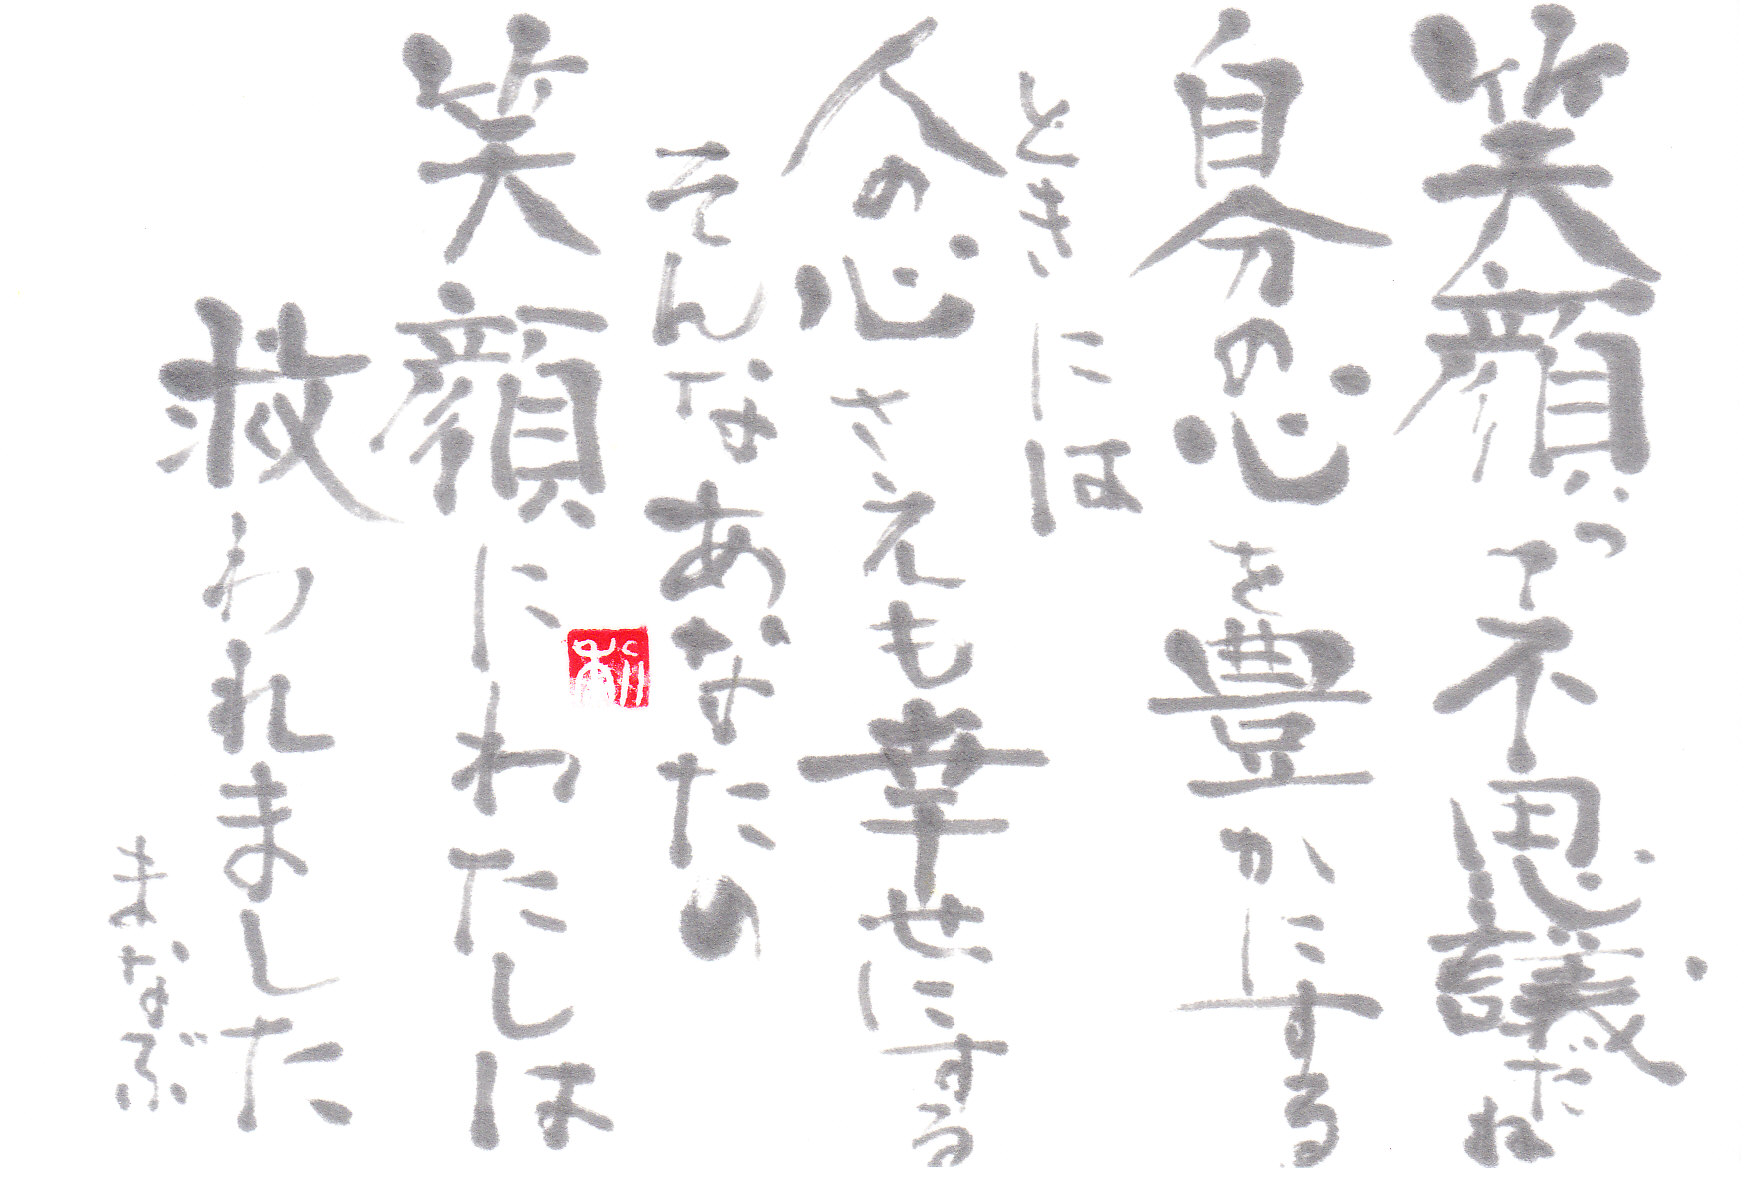 笑顔って不思議だね
自分の心を豊かにする
ときには
人の心さえも幸せにする
そんなあなたの
笑顔にわたしは
救われました
まなぶ